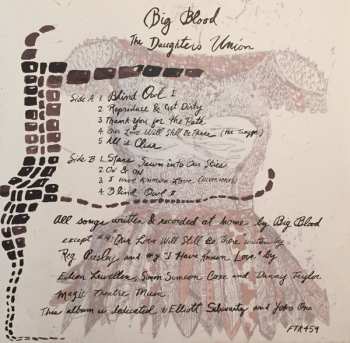 Big Blood
The Daughters Union
Side A 1 Blind Owl I
2 Reproduce & Get Dirty
3 Thank You for the Path
4 Our Love Will Still Be There (The Troggs)
5 All is Clear
Side B 1. Stars Sewn into Our Skies
2 On & On
3 I Have Known Love (Silver Apples)
4 Blind Owl II
All songs written & recorded at home by Big Blood
except #4 Our Love Will Still Be There written by
Reg Presley and #3 I Have Known Love by
Eileen Lewellen, Simeon Coxe and Danny Taylor
Magic Theatre Music
This album is dedicated to Elliott Schwartz and John
FTR459